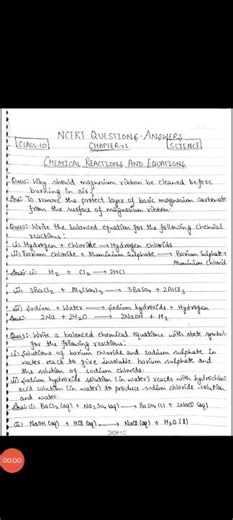 NCERT QUESTIONS-ANSWERS
CLASS-10 CHAPTER-1 SCIENCE
CHEMICAL REACTIONS AND EQUATIONS
Ques: Why should magnesium ribbon be cleaned before
burning in air?
Ans: To remove the protect layer of basic magnesium carbonate
from the surface of magnesium ribbon.
Ques: Write the balanced equation for the following chemical
reactions:
(i) Hydrogen + Chloride → Hydrogen chloride
(ii) Barium chloride + Aluminium sulphate → Barium sulphate +
Aluminium chlorid
Ans: (i) H₂ + Cl₂ → 2HCl
(ii) 3BaCl₂ + Al₂(SO₄)₃ → 3BaSO₄ + 2AlCl₃
(iii) Sodium + Water → Sodium hydroxide + Hydrogen
Ans: 2Na + 2H₂O → 2NaOH + H₂
Ques: Write a balanced chemical equations with state symbol
for the following reactions:
(i) Solutions of barium chloride and sodium sulphate in
water react to give insoluble barium sulphate and
the solution of sodium chloride.
(ii) Sodium hydroxide solution (in water) reacts with hydrochloric
acid solution (in water) to produce sodium chloride solution
and water.
Ans: (i) BaCl₂ (aq) + Na₂SO₄ (aq) → BaSO₄ (s) + 2NaCl (aq)
(ii) NaOH (aq) + HCl (aq) → NaCl (aq) + H₂O (l)
00:00